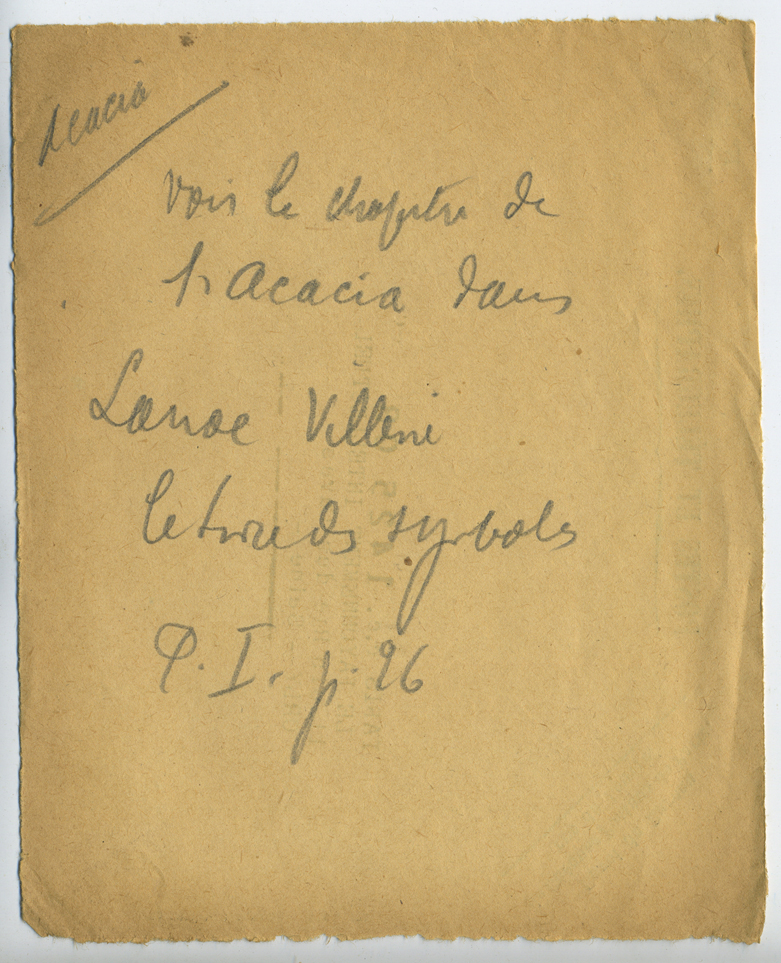 Acacia
Voir le chapitre de
l'Acacia dans
Lanoe Villene
le livre des symboles
P. I. p. 96